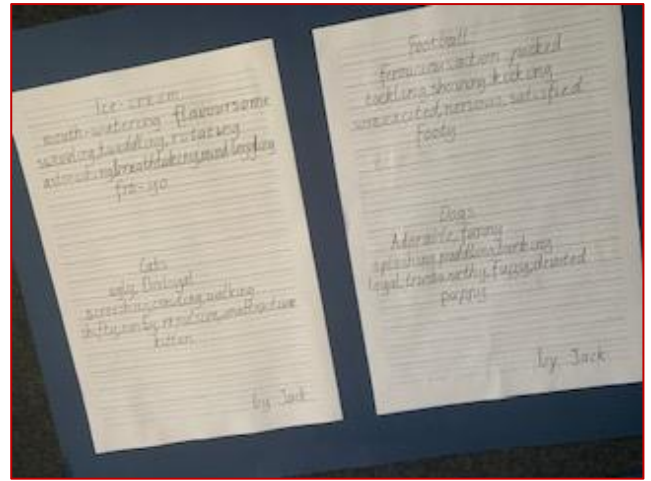 Ice-cream
mouth-watering flavoursome
swirling, twiddling, rotating
astounding, breathtaking, mind boggling
fro-yo
Cats
ugly, Disloyal
screeching, walking
shifty, repulsive, unattractive
kitten
by Jack
Football
ferocious, action packed
tackling, shoving, kicking
excited, nervous, satisfied
footy
Dogs
Adorable, funny
splashing, paddling, barking
loyal, trustworthy, fuzzy, devoted
puppy
by Jack